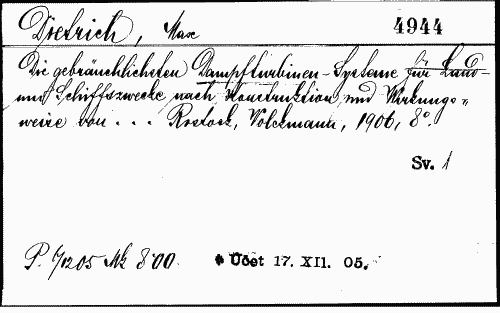 Dietrich, Max 4944
Die gebräuchlichsten Dampfturbinen-Systeme für Land-
und Schiffszwecke nach Konstruktion und Wirkungs-
weise von . . . Rostock, Volckmann, 1906, 8°.
Sv. 1
P. 6/1205 Mk 8·00. * Účet 17. XII. 05.